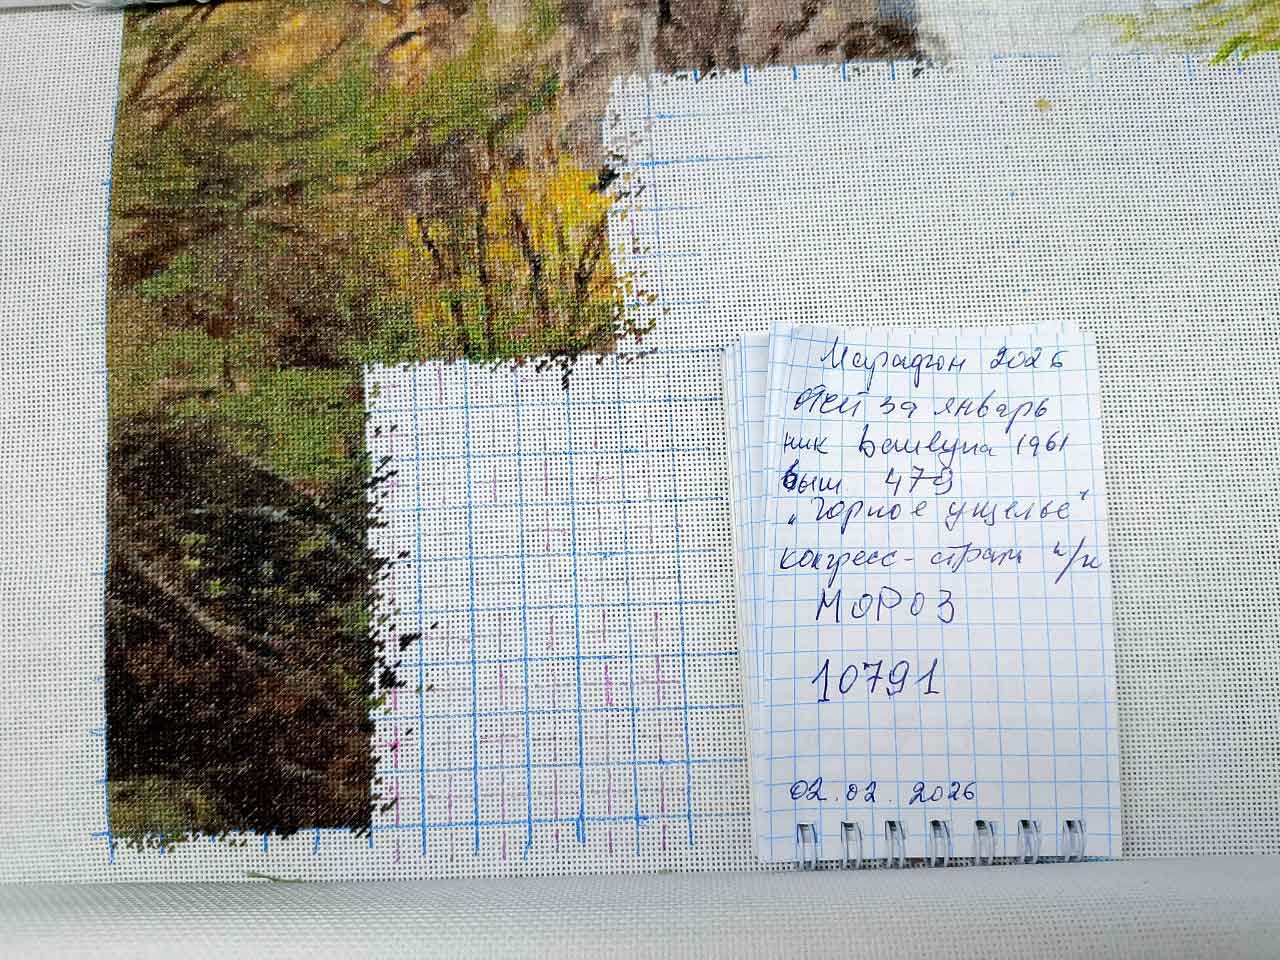 Марафон 2026
отчёт за январь
ник Вашвупа 1961
выш 479
"Горное ущелье"
конгресс-страт п/к
МОРОЗ
10791
02.02.2026